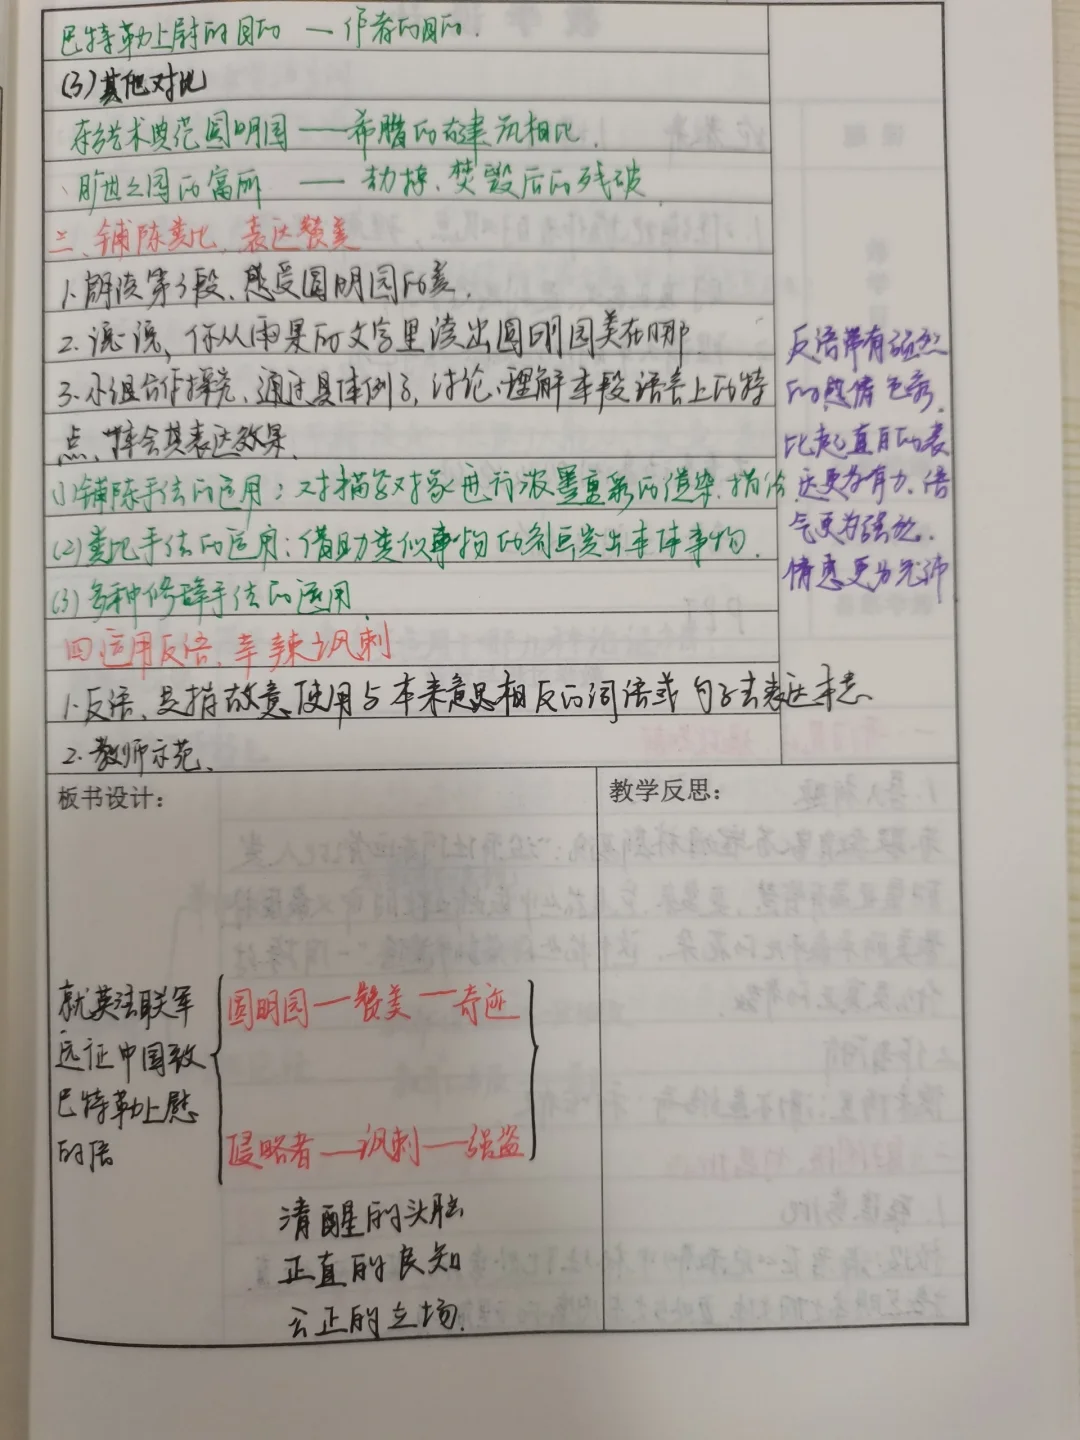 巴特勒上尉的目的 — 作者的目的.
(3)其他对比
东方艺术典范圆明园 —— 希腊的古建筑相比.
旷世之园的富丽 —— 劫掠、焚毁后的残破
三、铺陈类比、表达赞美
1.朗读第3段、感受圆明园的美.
2.说一说,你从雨果的文字里读出圆明园美在哪
3.小组合作探究,通过具体例子,讨论、理解本段语言上的特
点、体会其表达效果.
(1)铺陈手法的运用:对描写对象进行浓墨重彩的渲染、描绘
(2)类比手法的运用:借助类似事物的刻画突出本体事物.
(3)多种修辞手法的运用.
四、运用反语、辛辣讽刺
1.反语、是指故意使用与本来意思相反的词语或句子去表达本意.
2.教师示范.
反语带有强烈
的感情色彩,
比起直白的表
达更为有力、语
气更为强烈.
情感更为充沛
板书设计:
就英法联军
远征中国致
巴特勒上尉
的信
圆明园 — 赞美 — 奇迹
侵略者 — 讽刺 — 强盗
清醒的头脑
正直的良知
公正的立场.
教学反思: